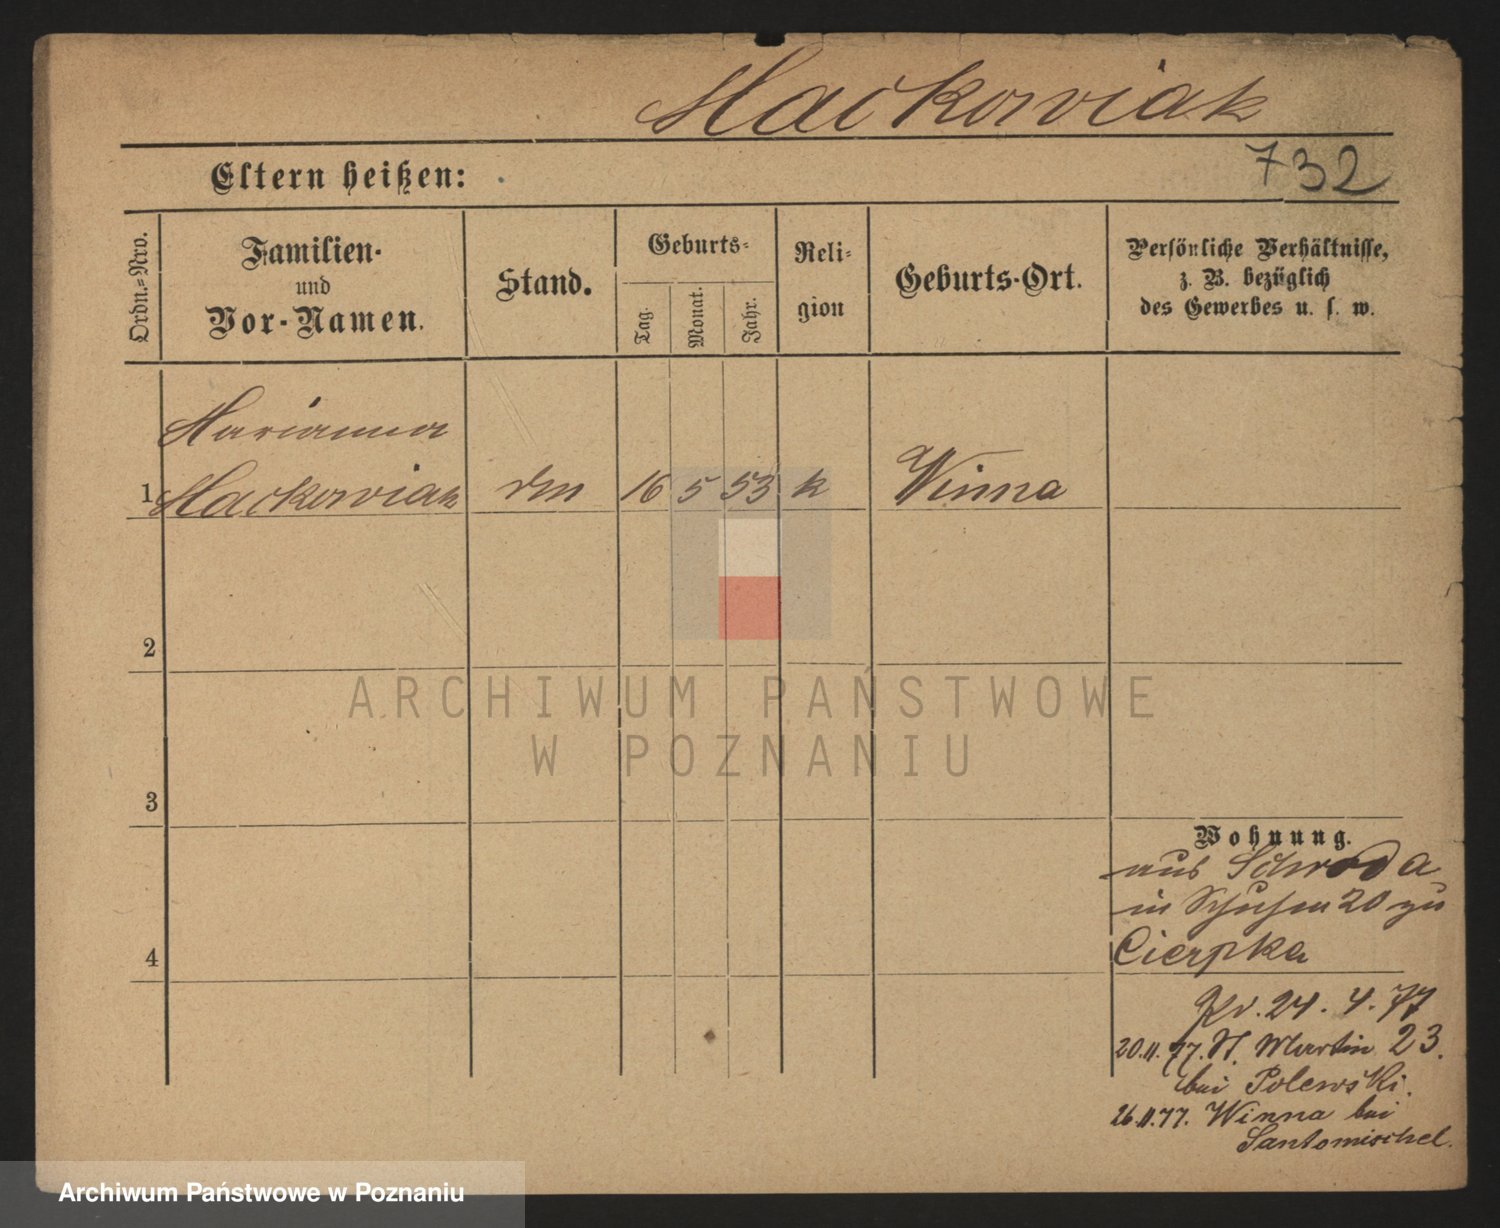 Mackowiak
732
Eltern heißen:
Ordn.=Nro.
Familien-
und
Vor-Namen.
Stand.
Geburts=
Tag.
Monat.
Jahr.
Reli=
gion
Geburts-Ort.
Persönliche Verhältnisse,
z. B. bezüglich
des Gewerbes u. s. w.
Marianna
1 Mackowiak 16 5 53 k Winna
2
ARCHIWUM PAŃSTWOWE
W POZNANIU
3
Wohnung.
aus Schroda
in 20 zu
Cierpka
24. 4. 77
20.11.77. St. Martin 23.
bei Polewski.
26.11.77. Winna bei
Santomischel.
4
Archiwum Państwowe w Poznaniu